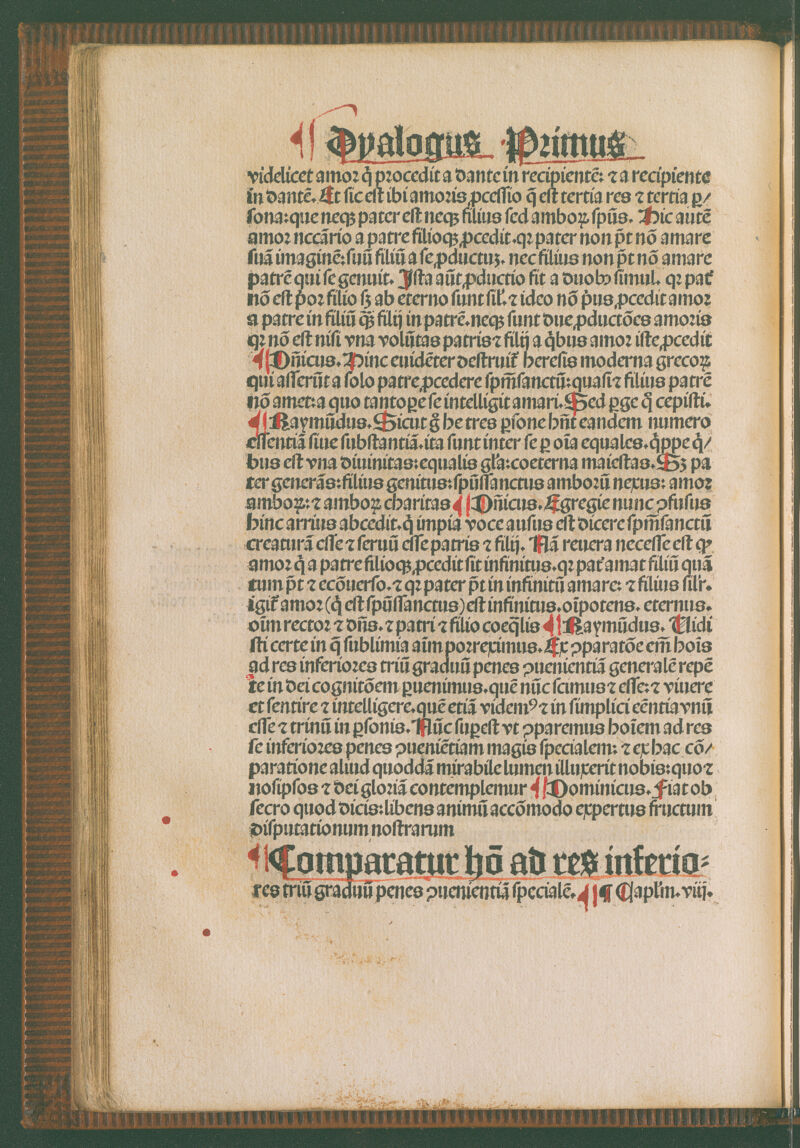 Dyalogus Primus
videlicet amoꝛ q̇ pꝛocedit a dante in recipientē: ⁊ a recipiente
in dantē. Et sic est ibi amoꝛis ꝓcessio q̄ est tertia res ⁊ tertia ꝑ/
sona: que neqꝫ pater est neqꝫ filius sed amboꝝ spūs. Hic autē
amoꝛ nccārio a patre filioqꝫ ꝓcedit. qꝛ pater non pt̄ nō amare
suā imaginē: suū filiū a se ꝓductuꝫ. nec filius non pt̄ nō amare
patrē qui se genuit. Ista aūt ꝓductio fit a duobꝰ simul. qꝛ pat̄
nō est pꝛoꝛ filio sꝫ ab eterno sunt sil̄. ⁊ ideo nō pꝰus ꝓcedit amoꝛ
a patre in filiū qꝫ̄ filij in patrē. neqꝫ sunt due ꝓductōes amoꝛis
qꝛ nō est nisi vna volūtas patris ⁊ filij a q̇bus amoꝛ iste ꝓcedit
¶ Dn̄icus. Hinc euidēter destruit̄ heresis moderna grecoꝝ
qui asserūt a solo patre ꝓcedere spm̄sanctū: quasi ⁊ filius patrē
nō amet: a quo tantoꝑe se intelligit amari. Sed ꝑge q̄ cepisti.
¶ Raymūdus. Sicut g̊ he tres ꝑsone hn̄t eandem numero
essentiā siue substantiā. ita sunt inter se ꝑ oīa equales. q̇ppe q̇/
bus est vna diuinitas: equalis gl̄a: coeterna maiestas. Sꝫ pa
ter generās: filius genitus: spūssanctus amboꝛū nexus: amoꝛ
amboꝝ: ⁊ amboꝝ charitas ¶ Dn̄icus. Egregie nunc ꝯfusus
hinc arrius abcedit. q̇ impia voce ausus est dicere spm̄sanctū
creaturā esse ⁊ seruū esse patris ⁊ filij. Nā reuera necesse est ꝙ
amoꝛ q̇ a patre filioqꝫ ꝓcedit sit infinitus. qꝛ pat̄ amat filiū quā
tum pt̄ ⁊ ecōuerso. ⁊ qꝛ pater pt̄ in infinitū amare: ⁊ filius silr̄.
igit̄ amoꝛ (q̇ est spūssanctus) est infinitus. oīpotens. eternus.
oīm rectoꝛ ⁊ dn̄s. ⁊ patri ⁊ filio coeq̄lis ¶ Raymūdus. Uidi
sti certe in q̄ sublimia aīm poꝛreximus. Ex ꝯparatōe em̄ hoīs
ad res inferioꝛes triū graduū penes ꝯuenientiā generalē repē
te in dei cognitōem ꝑuenimus. quē nūc scimus ⁊ esse: ⁊ viuere
et sentire ⁊ intelligere. quē etiā videmꝰ ⁊ in simplici eēntia vnū
esse ⁊ trinū in ꝑsonis. Nūc suꝑest vt ꝯparemus hoīem ad res
se inferioꝛes penes ꝯueniētiam magis specialem: ⁊ ex hac cō/
paratione aliud quoddā mirabile lumen illuxerit nobis: quo ⁊
nosipsos ⁊ dei gloꝛiā contemplemur ¶ Dominicus. Fiat ob
secro quod dicis: libens animū accōmodo expertus fructum
disputationum nostrarum
¶ Comparatur hō ad res inferio⸗
res triū graduū penes ꝯuenientiā specialē. ¶ ¶ Capl̄m. viij.